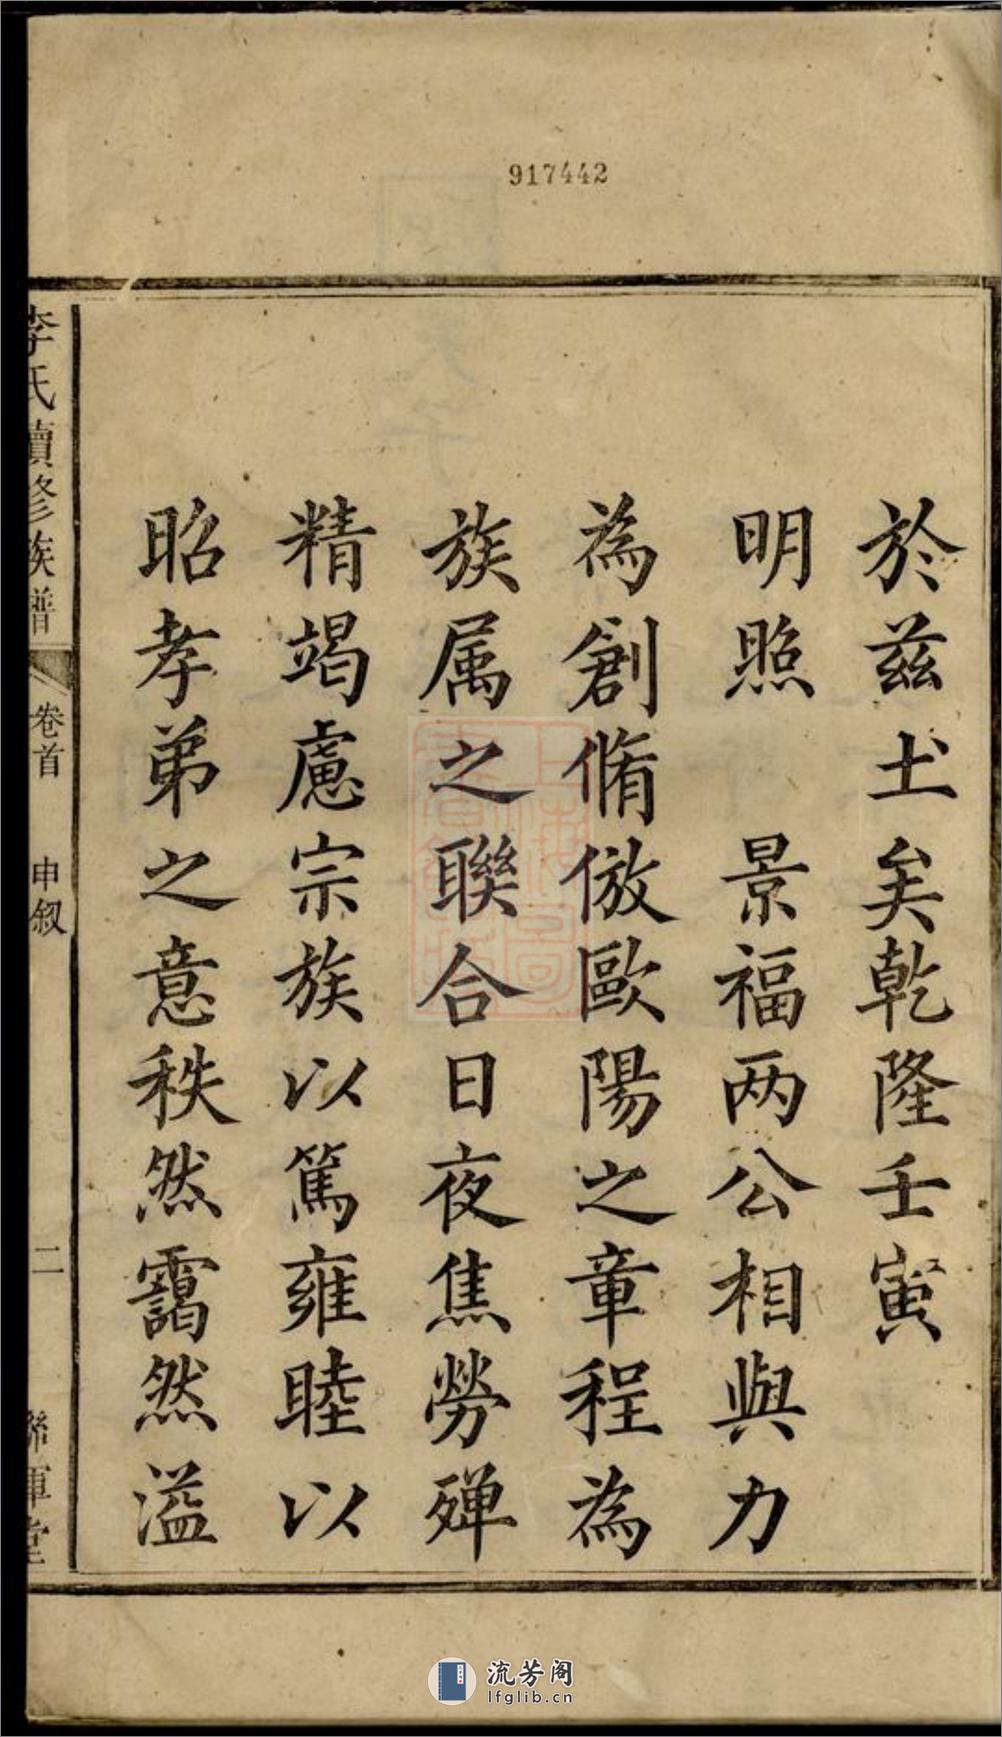 917442
於兹土矣乾隆壬寅
明照　景福两公相與力
為創脩倣歐陽之章程為
族属之聯合日夜焦勞殫
精竭慮宗族以篤雍睦以
昭孝弟之意秩然靄然溢
李氏續修族譜
卷首
申叙
二
聯軍堂
流芳阁
lfglib.cn